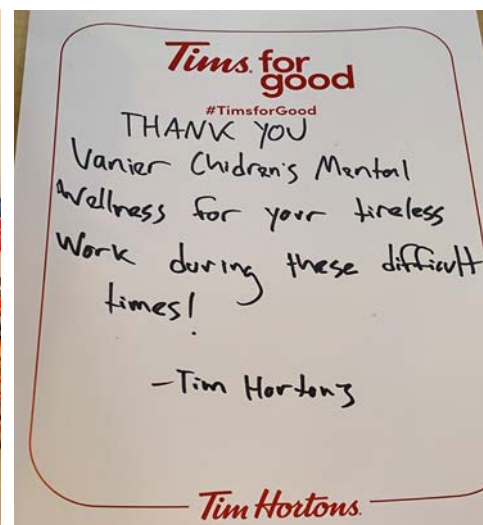 Tims for
good
#TimsforGood
THANK YOU
Vanier Chidren's Mental
Wellness for your tireless
Work during these difficult
times!
-Tim Hortons
Tim Hortons.